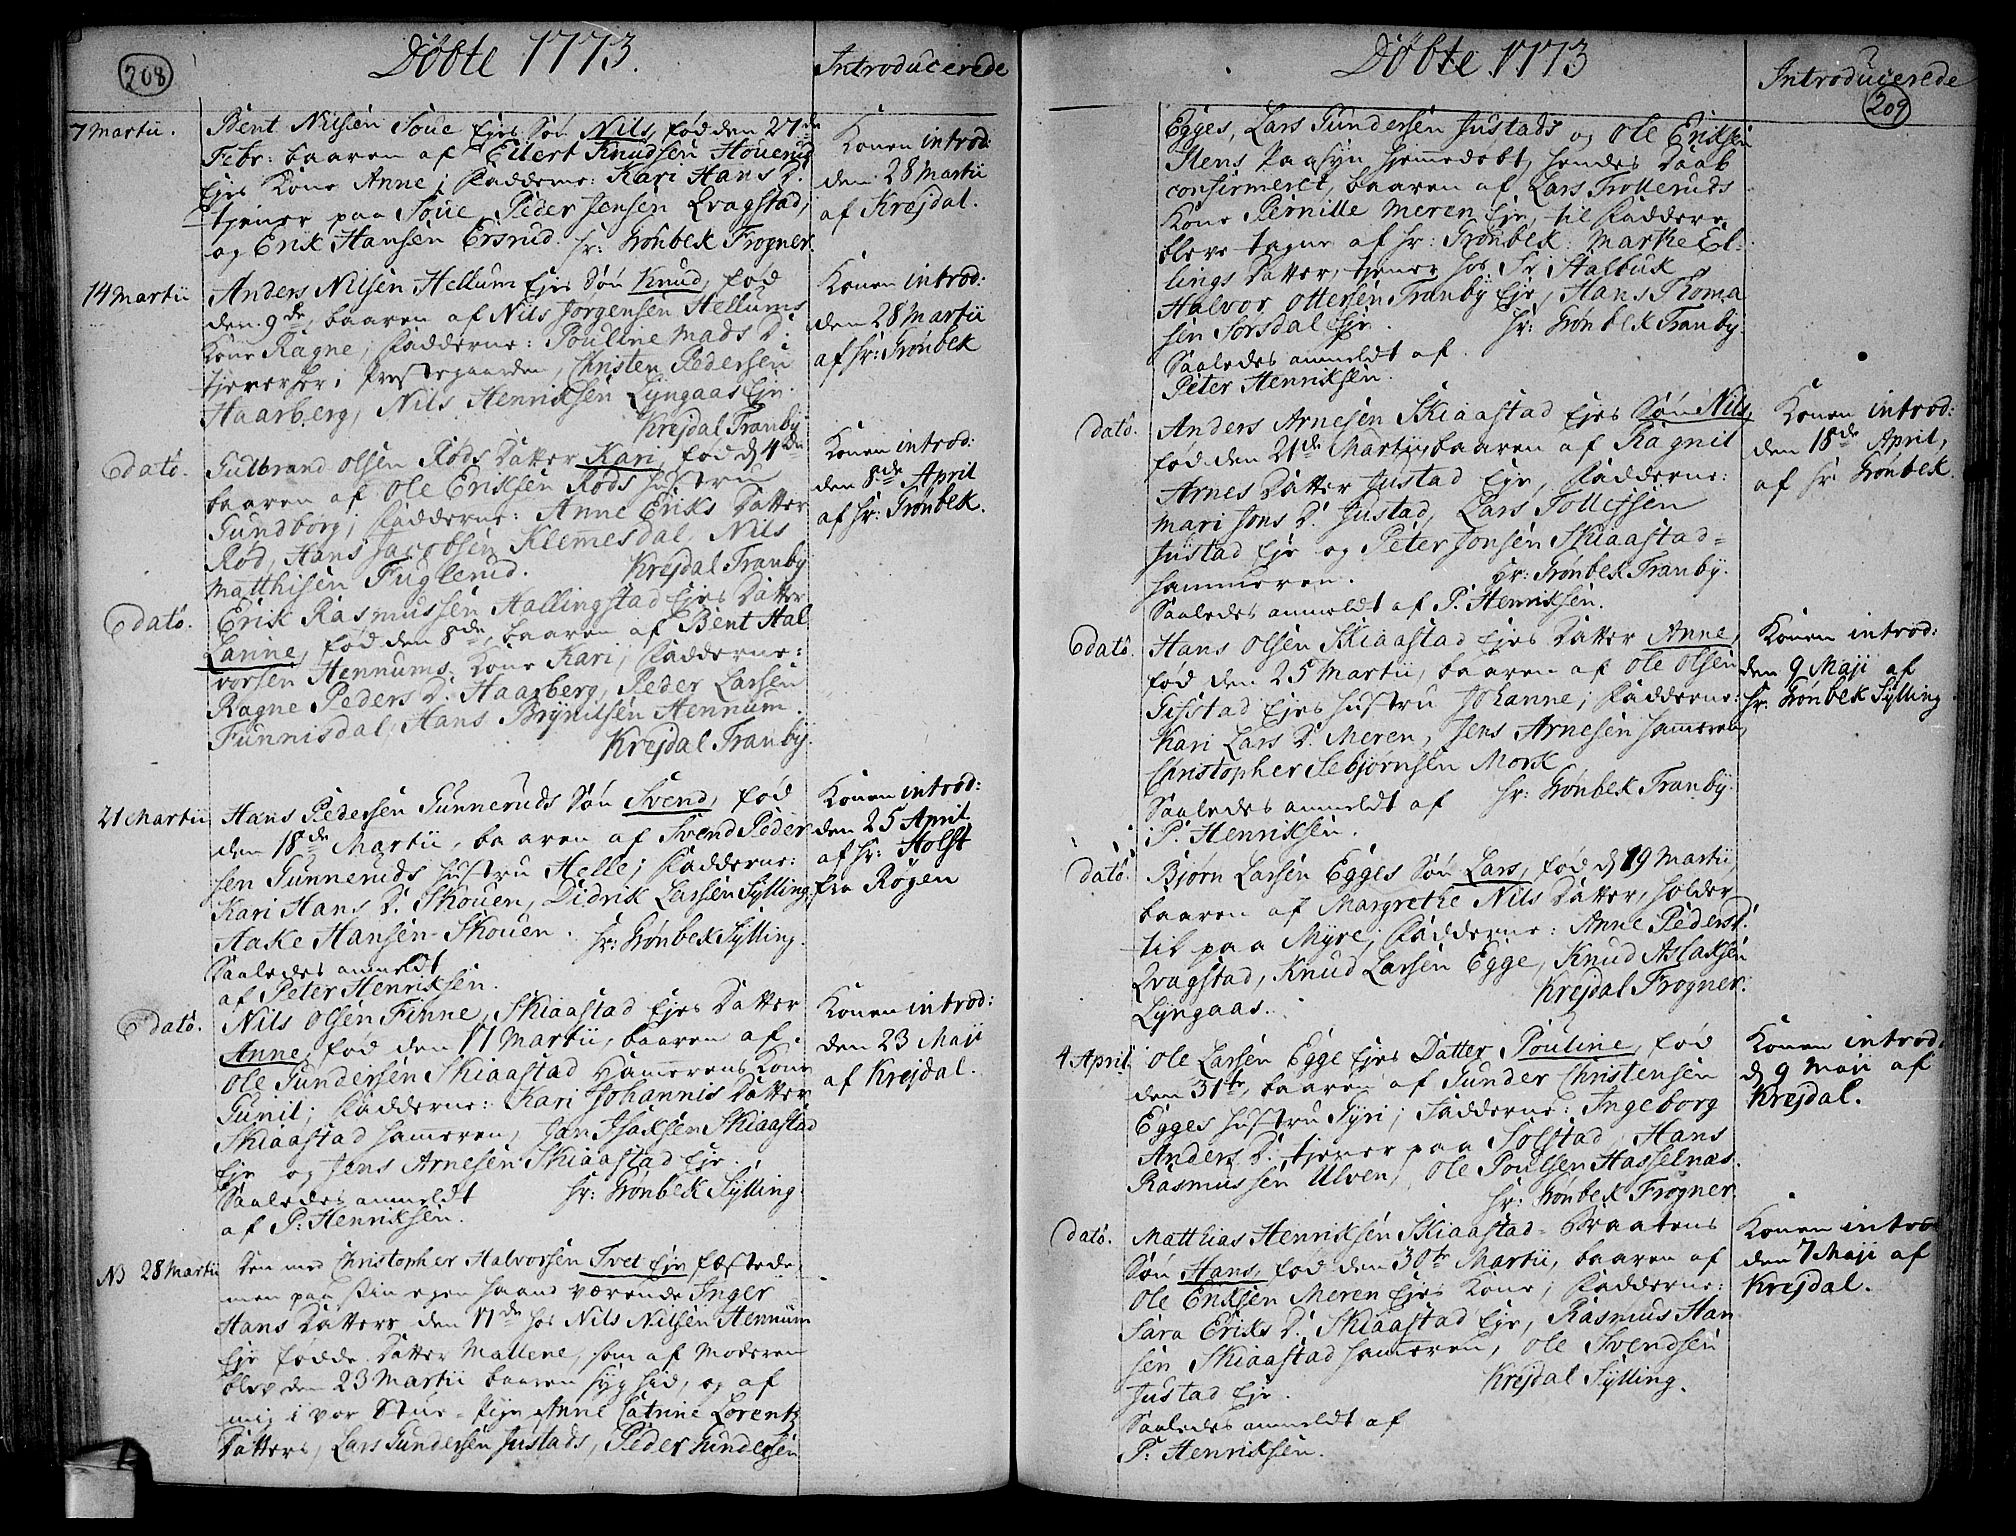 208
Døbte 1773.
Introducerede
7 Martii.
Bent Nilsen Soue Ejes Søn Nils, fød den 27de
Febr: baaren af Eilert Knudsen Houerud
Ejes Kone Anne; Fadderne: Kari Hans D.
tjener paa Soue, Peder Jensen Qvagstad,
og Erik Hansen Ersrud. hr: Grønbek Frogner.
Konen introd:
den 28 Martii
af Krejdal.
14 Martii
Anders Nilsen Hellum Ejes Søn Knud, fød
den 9de, baaren af Nils Jørgensen Hellums
Kone Ragne; Fadderne: Pouline Mads D.
tjenerher i Præstegaarden, Christen Pedersen
Haarberg, Nils Henriksen Lyngaas Eje.
Krejdal Tranby
Konen introd:
den 28 Martii
af hr: Grønbek
Edato.
Gulbrand Olsen Røds Datter Kari, fød d 4de
baaren af Ole Eriksen Røds Hustru
Gundborg; Fadderne: Anne Eriks Datter
Rød, Hans Jacobsen Klemesdal, Nils
Matthisen Fuglerud. Krejdal Tranby
Konen introd:
den 8de April
af hr: Grønbek.
Edato.
Erik Rasmussen Hallingstad Ejes Datter
Lanine, fød den 8de, baaren af Bent Hal
vorsen Hennums Kone Kari; Fadderne:
Ragne Peders D. Haarberg, Peder Larsen
Funnisdal, Hans Brynilsen Hennum.
Krejdal Tranby.
21 Martii
Hans Pedersen Gunneruds Søn Svend, fød
den 18de Martii, baaren af Svend Peder
sen Gunneruds Hustru Helle; Fadderne:
Kari Hans D. Skouen, Didrik Larsen Sylling,
Aake Hansen Skouen. hr: Grønbek Sylling.
Saaledes anmeldt
af Peter Henriksen.
Konen introd:
den 25 April
af hr: Holst
fra Røgen
Edato.
Nils Olsen Finne, Skiaastad Ejes Datter
Anne, fød den 11 Martii, baaren af
Ole Gundersen Skiaastad Hamerens Kone
Gunil; Fadderne: Kari Johannis Datter
Skiaastad Hameren, Jan Isaksen Skiaastad
Eje og Jens Arnesen Skiaastad Eje.
Saaledes anmeldt hr: Grønbek Sylling.
af P: Henriksen.
Konen introd:
den 23 Maji
af Krejdal.
NB 28 Martii
Den med Christopher Halvorsen Tvet Eje fæstede
men paa sin egen Haand værende Inger
Hans Datters den 11de hos Nils Nilsen Hennum
Eje fødde Datter Mallene, som af Moderen
blev den 23 Martii baaren syg hid, og af
mig i vor Stue, Pige Anne Catrine Lorentz
Datters, Lars Gundersen Justads, Peder Gundersen
Døbte 1773
Introducerede
209
Egges, Lars Gundersen Justads og Ole Eriksen
Stens Paasyn hjemmedøbt, hendes Daab
confirmeret, baaren af Lars Trolleruds
Kone Pernille Meren Eje, til Faddere
bleve tagne af hr: Grønbek: Marthe El-
lings Datter, tjener hos Sr. Stalbuk
Halvor Ottersen Tranby Eje, Hans Thoma
sen Sorsdal Eje. hr: Grønbek Tranby.
Saaledes anmeldt af
Peter Henriksen.
dato.
Anders Arnesen Skiaastad Ejes Søn Nils,
fød den 21de Martii, baaren af Ragnil
Arnes Datter Justad Eje, Fadderne:
Mari Jons D. Justad, Lars Tollefsen
Justad Eje og Peter Jonsen Skiaastad=
hammeren. hr: Grønbek Tranby.
Saaledes anmeldt af P. Henriksen.
Konen introd:
den 18de April,
af hr Grønbek.
Edato.
Hans Olsen Skiaastad Ejes Datter Anne,
fød den 25 Martii, baaren af Ole Olsen
Gisstad Ejes Hustru Johanne; Fadderne:
Kari Lars D. Meren, Jens Arnesen Hameren,
Christopher Sebjørnsen Mork
Saaledes anmeldt af hr: Grønbek Tranby.
P. Henriksen.
Konen introd:
den 9 Maji af
hr: Grønbek Sylling
dato.
Bjørn Larsen Egges Søn Lars, fød d 19 Martii,
baaren af Margrethe Nils Datter, holder
til paa Myre; Fadderne: Anne Peders D.
Qvagstad, Knud Larsen Egge, Knud Aslaksen
Lyngaas. Krejdal Frogner.
4 April
Ole Larsen Egge Ejes Datter Pouline, fød
den 31te, baaren af Gunder Christensen
Egges Hustru Syri; Fadderne: Ingeborg
Anders D. tjener paa Solstad, Hans
Rasmussen Ulven, Ole Poulsen Hasselnæs.
hr: Grønbek Frogner.
Konen introd.
d 9 Maji af
Krejdal.
dato.
Matthias Henriksen Skiaastad-Braatens
Søn Hans, fød den 30te Martii, baaren af
Ole Eriksen Meren Ejes Kone; Fadderne:
Sara Eriks D. Skiaastad Eje, Rasmus Han
sen Skiaastad Hameren, Ole Svendsen
Justad Eje. Krejdal Sylling.
Saaledes anmeldt af
P: Henriksen.
Konen introd
den 7 Maji af
Krejdal.